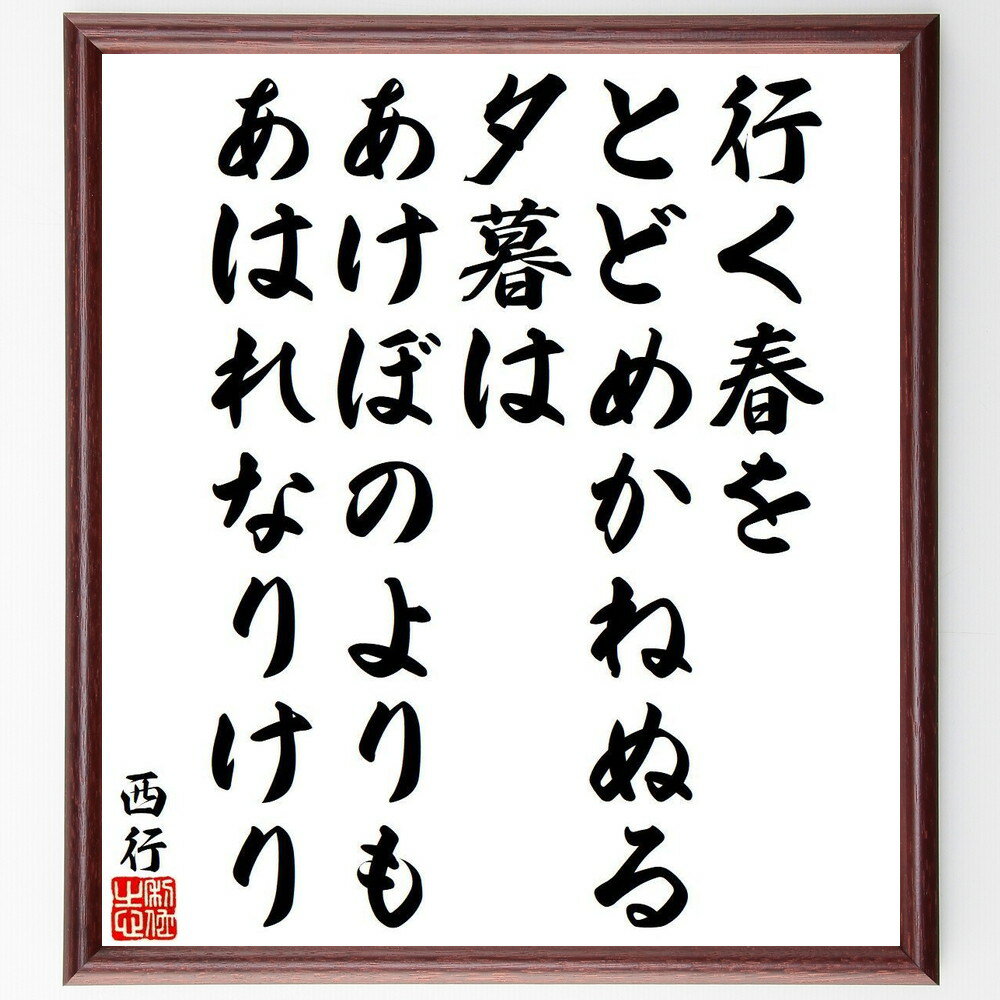 行く春を
とどめかねぬる
夕暮は
あけぼのよりも
あはれなりけり
西行